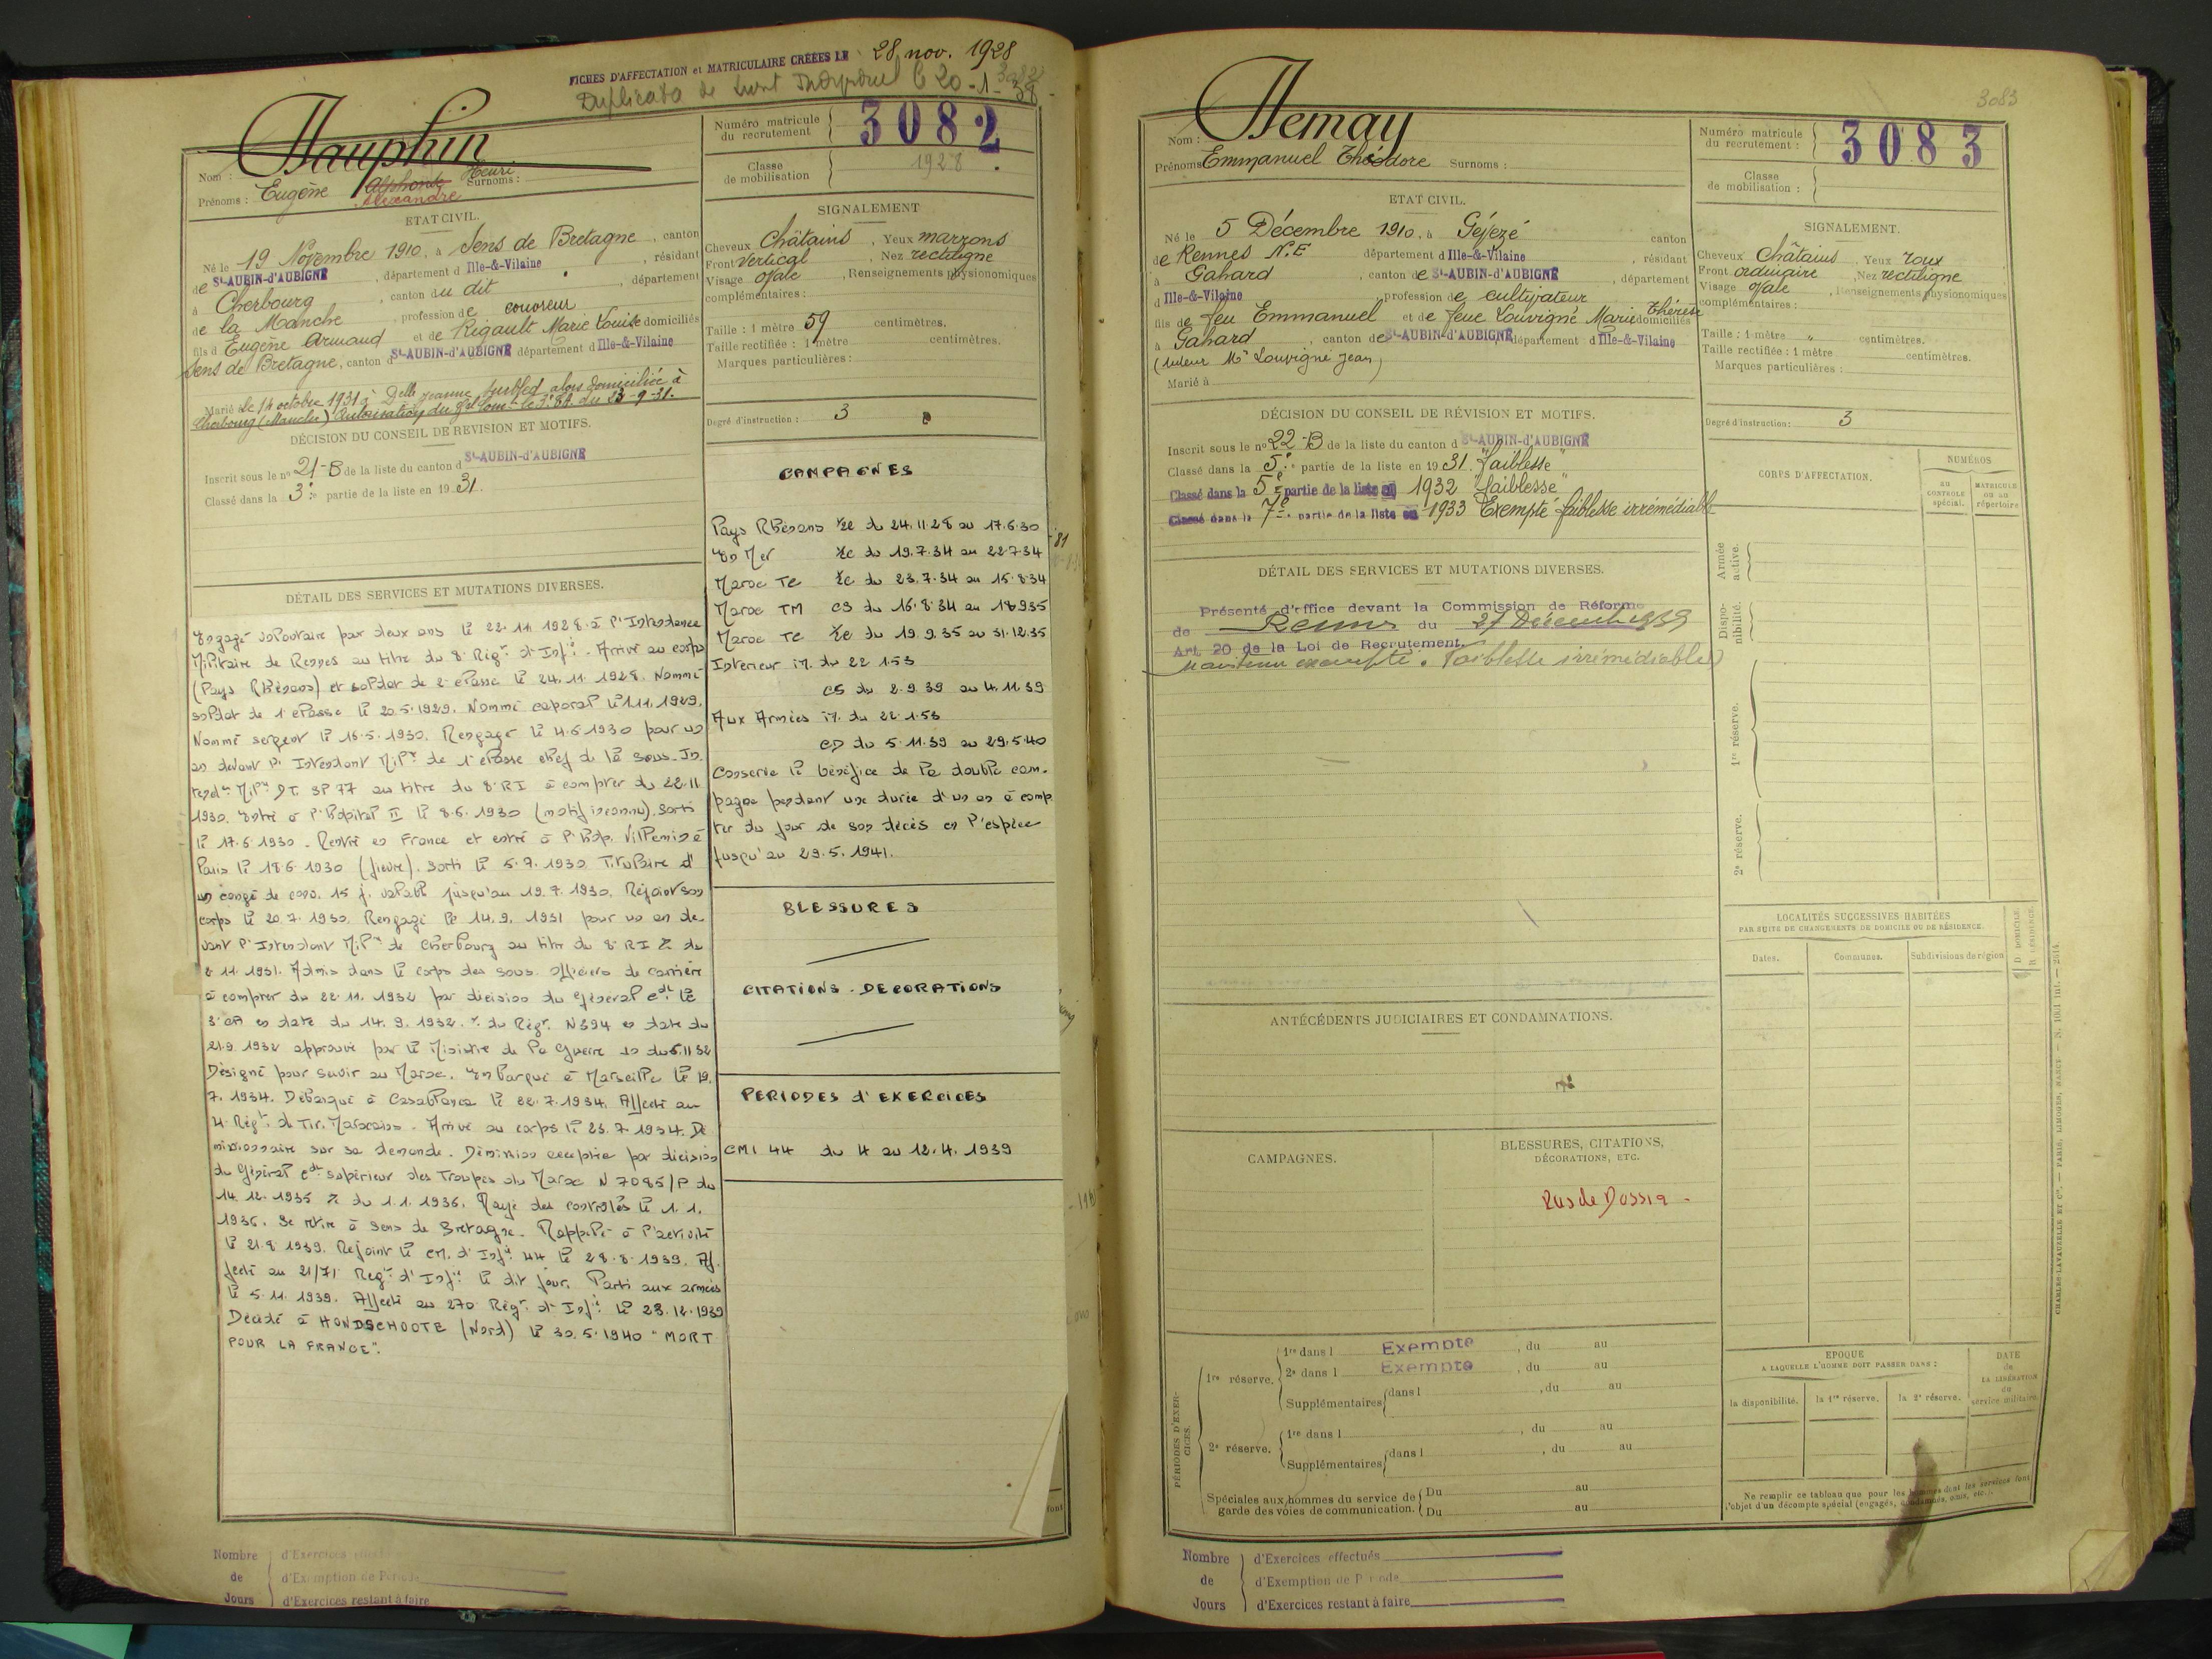 FICHES D'AFFECTATION et MATRICULAIRE CRÉÉES LE 28 nov. 1928
Duplicata de Livret Individuel le 20-1-38
3082
Dauphin
Nom :
Prénoms : Eugène Alphonse Henri Surnoms :
Alexandre
ETAT CIVIL.
Né le 19 Novembre 1910, à Sens de Bretagne, canton
de St-AUBIN-d'AUBIGNÉ, département d Ille-&-Vilaine, résidant
à Cherbourg, canton du dit, département
de la Manche, profession de couvreur
fils d Eugène Armand et de Rigault Marie Louise domiciliés
Sens de Bretagne, canton d St-AUBIN-d'AUBIGNÉ département d Ille-&-Vilaine
Marié le 14 octobre 1931 à Delle Jeanne alors domiciliée à
Cherbourg (Manche) Autorisation du Gal Com. le 3e RA du 23-9-31.
DÉCISION DU CONSEIL DE REVISION ET MOTIFS.
Inscrit sous le no 21-B de la liste du canton d St-AUBIN-d'AUBIGNÉ
Classé dans la 3e partie de la liste en 1931.
DÉTAIL DES SERVICES ET MUTATIONS DIVERSES.
Engagé volontaire par deux ans le 22.11.1928 à l'Intendance
Militaire de Rennes au titre du 8 Régt d'Infie. Arrivé au corps
(Pays Rhénans) et soldat de 2 classe le 24.11.1928. Nommé
soldat de 1 classe le 20.5.1929. Nommé caporal le 1.11.1929.
Nommé sergent le 16.5.1930. Rengagé le 4.6.1930 pour un
an devant l' Intendant Milre de 1 classe chef de la Sous-In
tendce Milre DT. SP 77 au titre du 8 RI à compter du 22.11
1930. Entré à l'hôpital II le 8.6.1930 (motif inconnu). Sorti
le 17.6.1930. Rentré en France et entré à l'hôp. Villemin à
Paris le 18.6.1930 (fièvre). Sorti le 5.7.1930. Titulaire d'
un congé de conv. 15 j. valabl jusqu'au 19.7.1930. Rejoint son
corps le 20.7.1930. Rengagé le 14.9.1931 pour un an de
vant l'Intendant Milre de Cherbourg au titre du 8 RI & du
2.11.1931. Admis dans le corps des sous-officiers de carrière
à compter du 22.11.1932 par décision du Général cdt le
3 CA en date du 14.9.1932. du Régt. N394 en date du
21.9.1932 approuvé par le Ministre de la Guerre en du 5.11.32
Désigné pour servir au Maroc. Embarqué à Marseille le 19.
7.1934. Débarqué à Casablanca le 22.7.1934. Affecté au
4 Régt de Tir. Marocains. Arrivé au corps le 23.7.1934. Dé
missionnaire sur sa demande. Démission acceptée par décision
du Général cdt supérieur des Troupes du Maroc N 7085/P du
14.12.1935 & du 1.1.1936. Rayé des contrôles le 1.1.
1936. Se retire à Sens de Bretagne. Rappelé à l'activité
le 21.8.1939. Rejoint le CM. d'Infie 44 le 28.8.1939. Af
fecté au 21/71 Régt d'Infie le dit jour. Parti aux armées
le 5.11.1939. Affecté au 270 Régt d'Infie le 23.12.1939
Décédé à HONDSCHOOTE (Nord) le 30.5.1940 "MORT
POUR LA FRANCE".
Numéro matricule du recrutement 3082
Classe de mobilisation 1928
SIGNALEMENT
Cheveux Châtains, Yeux marrons
Front Vertical, Nez rectiligne
Visage Ovale, Renseignements physionomiques
complémentaires :
Taille : 1 mètre 59 centimètres.
Taille rectifiée : 1 mètre centimètres.
Marques particulières :
Degré d'instruction : 3
CAMPAGNES
Pays Rhénans &c du 24.11.28 au 17.6.30
En Mer &c du 19.7.34 au 22.7.34
Maroc TC &c du 23.7.34 au 15.8.34
Maroc TM CS du 16.8.34 au 18.9.35
Maroc TC &c du 19.9.35 au 31.12.35
Intérieur i7. du 22.1.53
CS du 2.9.39 au 4.11.39
Aux Armées i7. du 22.1.53
CD du 5.11.39 au 29.5.40
Conserve le bénéfice de la double cam-
pagne pendant une durée d'un an à comp
ter du jour de son décès en l'espèce
jusqu'au 29.5.1941.
BLESSURES
CITATIONS - DECORATIONS
PERIODES d'EXERCICES
CMI 44 du 4 au 12.4.1939
Nombre de Jours
d'Exercices
d'Exemption de Période
d'Exercices restant à faire
3083
Nom : Demay
Prénoms Emmanuel Théodore Surnoms :
ETAT CIVIL.
Né le 5 Décembre 1910, à Gévezé canton
de Rennes N.E département d Ille-&-Vilaine, résidant
à Gahard, canton de St-AUBIN-d'AUBIGNÉ, département
d Ille-&-Vilaine, profession de cultivateur
fils de feu Emmanuel et de feue Louvigné Marie Thérèse domiciliés
à Gahard, canton de St-AUBIN-d'AUBIGNÉ, département d Ille-&-Vilaine
(tuteur Mr Louvigné Jean)
Marié à
DÉCISION DU CONSEIL DE RÉVISION ET MOTIFS.
Inscrit sous le no 22-B de la liste du canton d St-AUBIN-d'AUBIGNÉ
Classé dans la 5e partie de la liste en 1931. "faiblesse"
Classé dans la 5e partie de la liste en 1932 "faiblesse"
Classé dans la 7e partie de la liste en 1933 Exempté faiblesse irrémédiable
DÉTAIL DES SERVICES ET MUTATIONS DIVERSES.
Présenté d'office devant la Commission de Réforme
de Rennes du 27 Décembre 1939
Art. 20 de la Loi de Recrutement.
Maintenu exempté. Faiblesse irrémédiable
ANTÉCÉDENTS JUDICIAIRES ET CONDAMNATIONS.
CAMPAGNES.
BLESSURES, CITATIONS,
DÉCORATIONS, ETC.
Pas de Dossier
PÉRIODES D'EXERCICES.
1re réserve. 1re dans l Exempté, du au
2e dans l Exempté, du au
Supplémentaires dans l, du au
2e réserve. 1re dans l, du au
Supplémentaires dans l, du au
Spéciales aux hommes du service de garde des voies de communication. Du au
Du au
Nombre de Jours
d'Exercices effectués
d'Exemption de Période
d'Exercices restant à faire
Numéro matricule du recrutement : 3083
Classe de mobilisation :
SIGNALEMENT.
Cheveux Châtains, Yeux roux
Front ordinaire, Nez rectiligne
Visage Ovale, Renseignements physionomiques
complémentaires :
Taille : 1 mètre " centimètres.
Taille rectifiée : 1 mètre centimètres.
Marques particulières :
Degré d'instruction : 3
CORPS D'AFFECTATION.
NUMÉROS
AU CONTROLE spécial.
MATRICULE OU AU répertoire
Armée active.
Disponibilité.
1re réserve.
2e réserve.
LOCALITÉS SUCCESSIVES HABITÉES
PAR SUITE DE CHANGEMENTS DE DOMICILE OU DE RÉSIDENCE.
Dates.
Communes.
Subdivisions de région
D DOMICILE.
R RÉSIDENCE.
EPOQUE
A LAQUELLE L'HOMME DOIT PASSER DANS :
la disponibilité.
la 1re réserve.
la 2e réserve.
DATE de LA LIBÉRATION du service militaire.
Ne remplir ce tableau que pour les hommes dont les services font
l'objet d'un décompte spécial (engagés, condamnés, omis, etc.).
CHARLES-LAVAUZELLE ET Cie. — PARIS, LIMOGES, NANCY